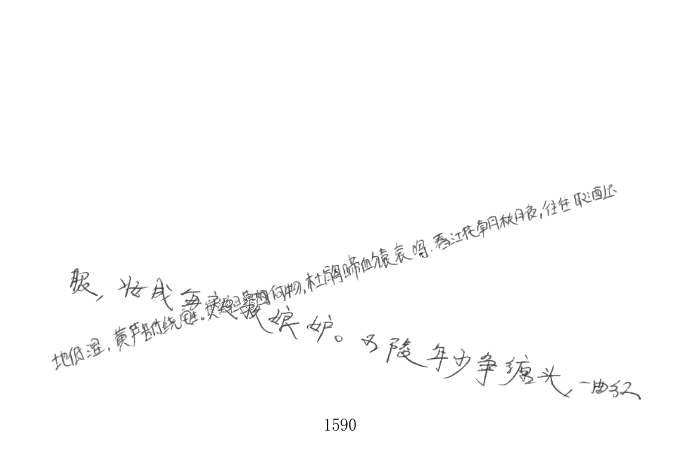 服，妆成每被秋娘妒。五陵年少争缠头，一曲红
地低湿，黄芦苦竹绕宅生。其间旦暮闻何物，杜鹃啼血猿哀鸣。春江花朝月秋月夜，往往取酒还
1590